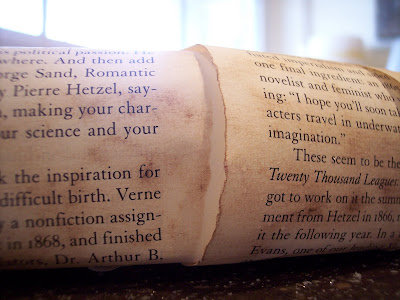 political passion. He
where. And then add
orge Sand, Romantic
y Pierre Hetzel, say-
, making your char-
ur science and your
k the inspiration for
difficult birth. Verne
y a nonfiction assign-
in 1868, and finished
Dr. Arthur B.
one final ingredient: an
novelist and feminist who
ing: "I hope you'll soon tak
acters travel in underwat
imagination."
These seem to be the
Twenty Thousand Leagues.
got to work on it the summ
ment from Hetzel in 1866,
it the following year. In a
Evans, one of our